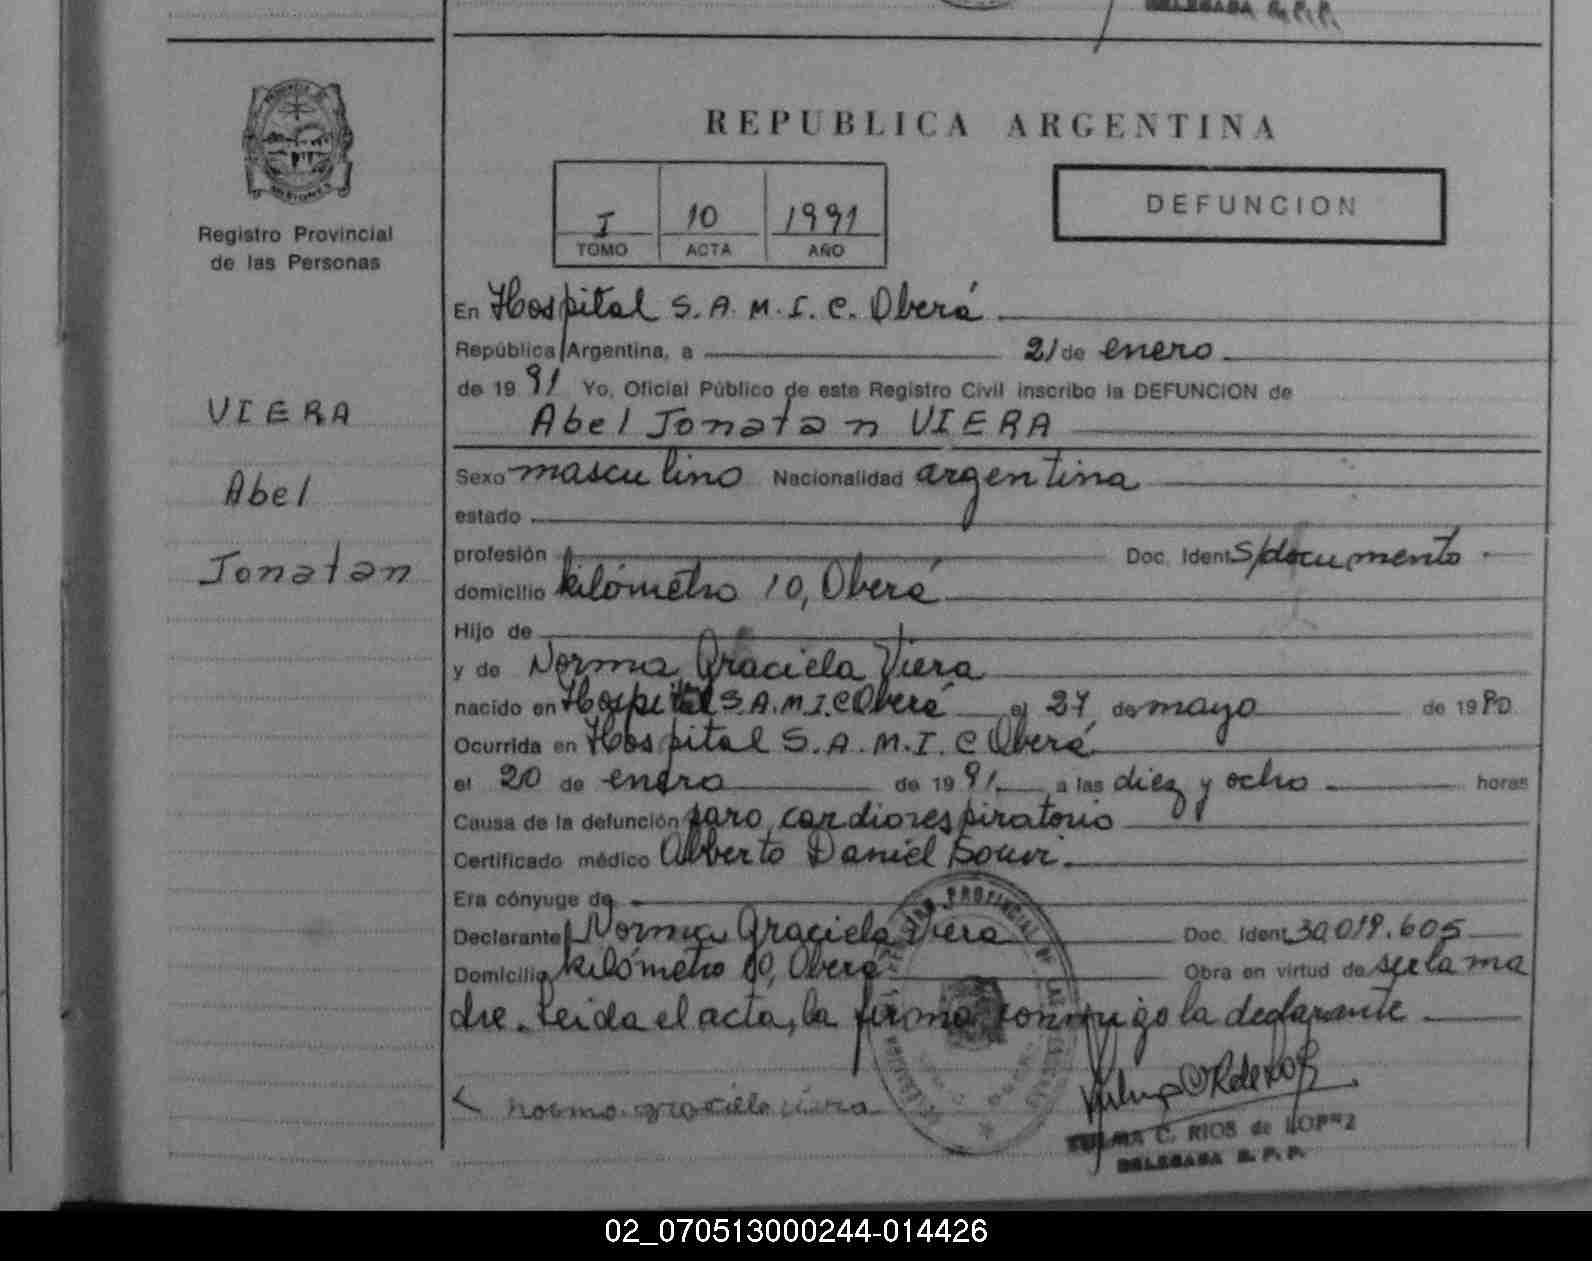 DELEGADA R.P.P.
REPUBLICA ARGENTINA
I 10 1991
TOMO ACTA AÑO
DEFUNCION
Registro Provincial
de las Personas
VIERA
Abel
Jonatan
En Hospital S.A.M.I.C. Oberá
República Argentina, a 21 de enero
de 1991 Yo, Oficial Público de este Registro Civil inscribo la DEFUNCION de
Abel Jonatan VIERA
Sexo masculino Nacionalidad argentina
estado
profesión Doc. Ident. S/documento
domicilio kilómetro 10, Oberá
Hijo de
y de Norma Graciela Viera
nacido en Hospital S.A.M.I.C Oberá el 27 de mayo de 19
Ocurrida en Hospital S.A.M.I.C Oberá
el 20 de enero de 1991 a las diez y ocho horas
Causa de la defunción paro cardiorespiratorio
Certificado médico Alberto Daniel
Era cónyuge de
Declarante Norma Graciela Viera Doc. Ident. 30.019.605
Domicilio kilómetro 10, Oberá Obra en virtud de ser la ma
dre. Leida el acta, la firma conmigo la declarante
norma graciela viera
TELMA C. RIOS de LOPEZ
DELEGADA R.P.P.
02_070513000244-014426